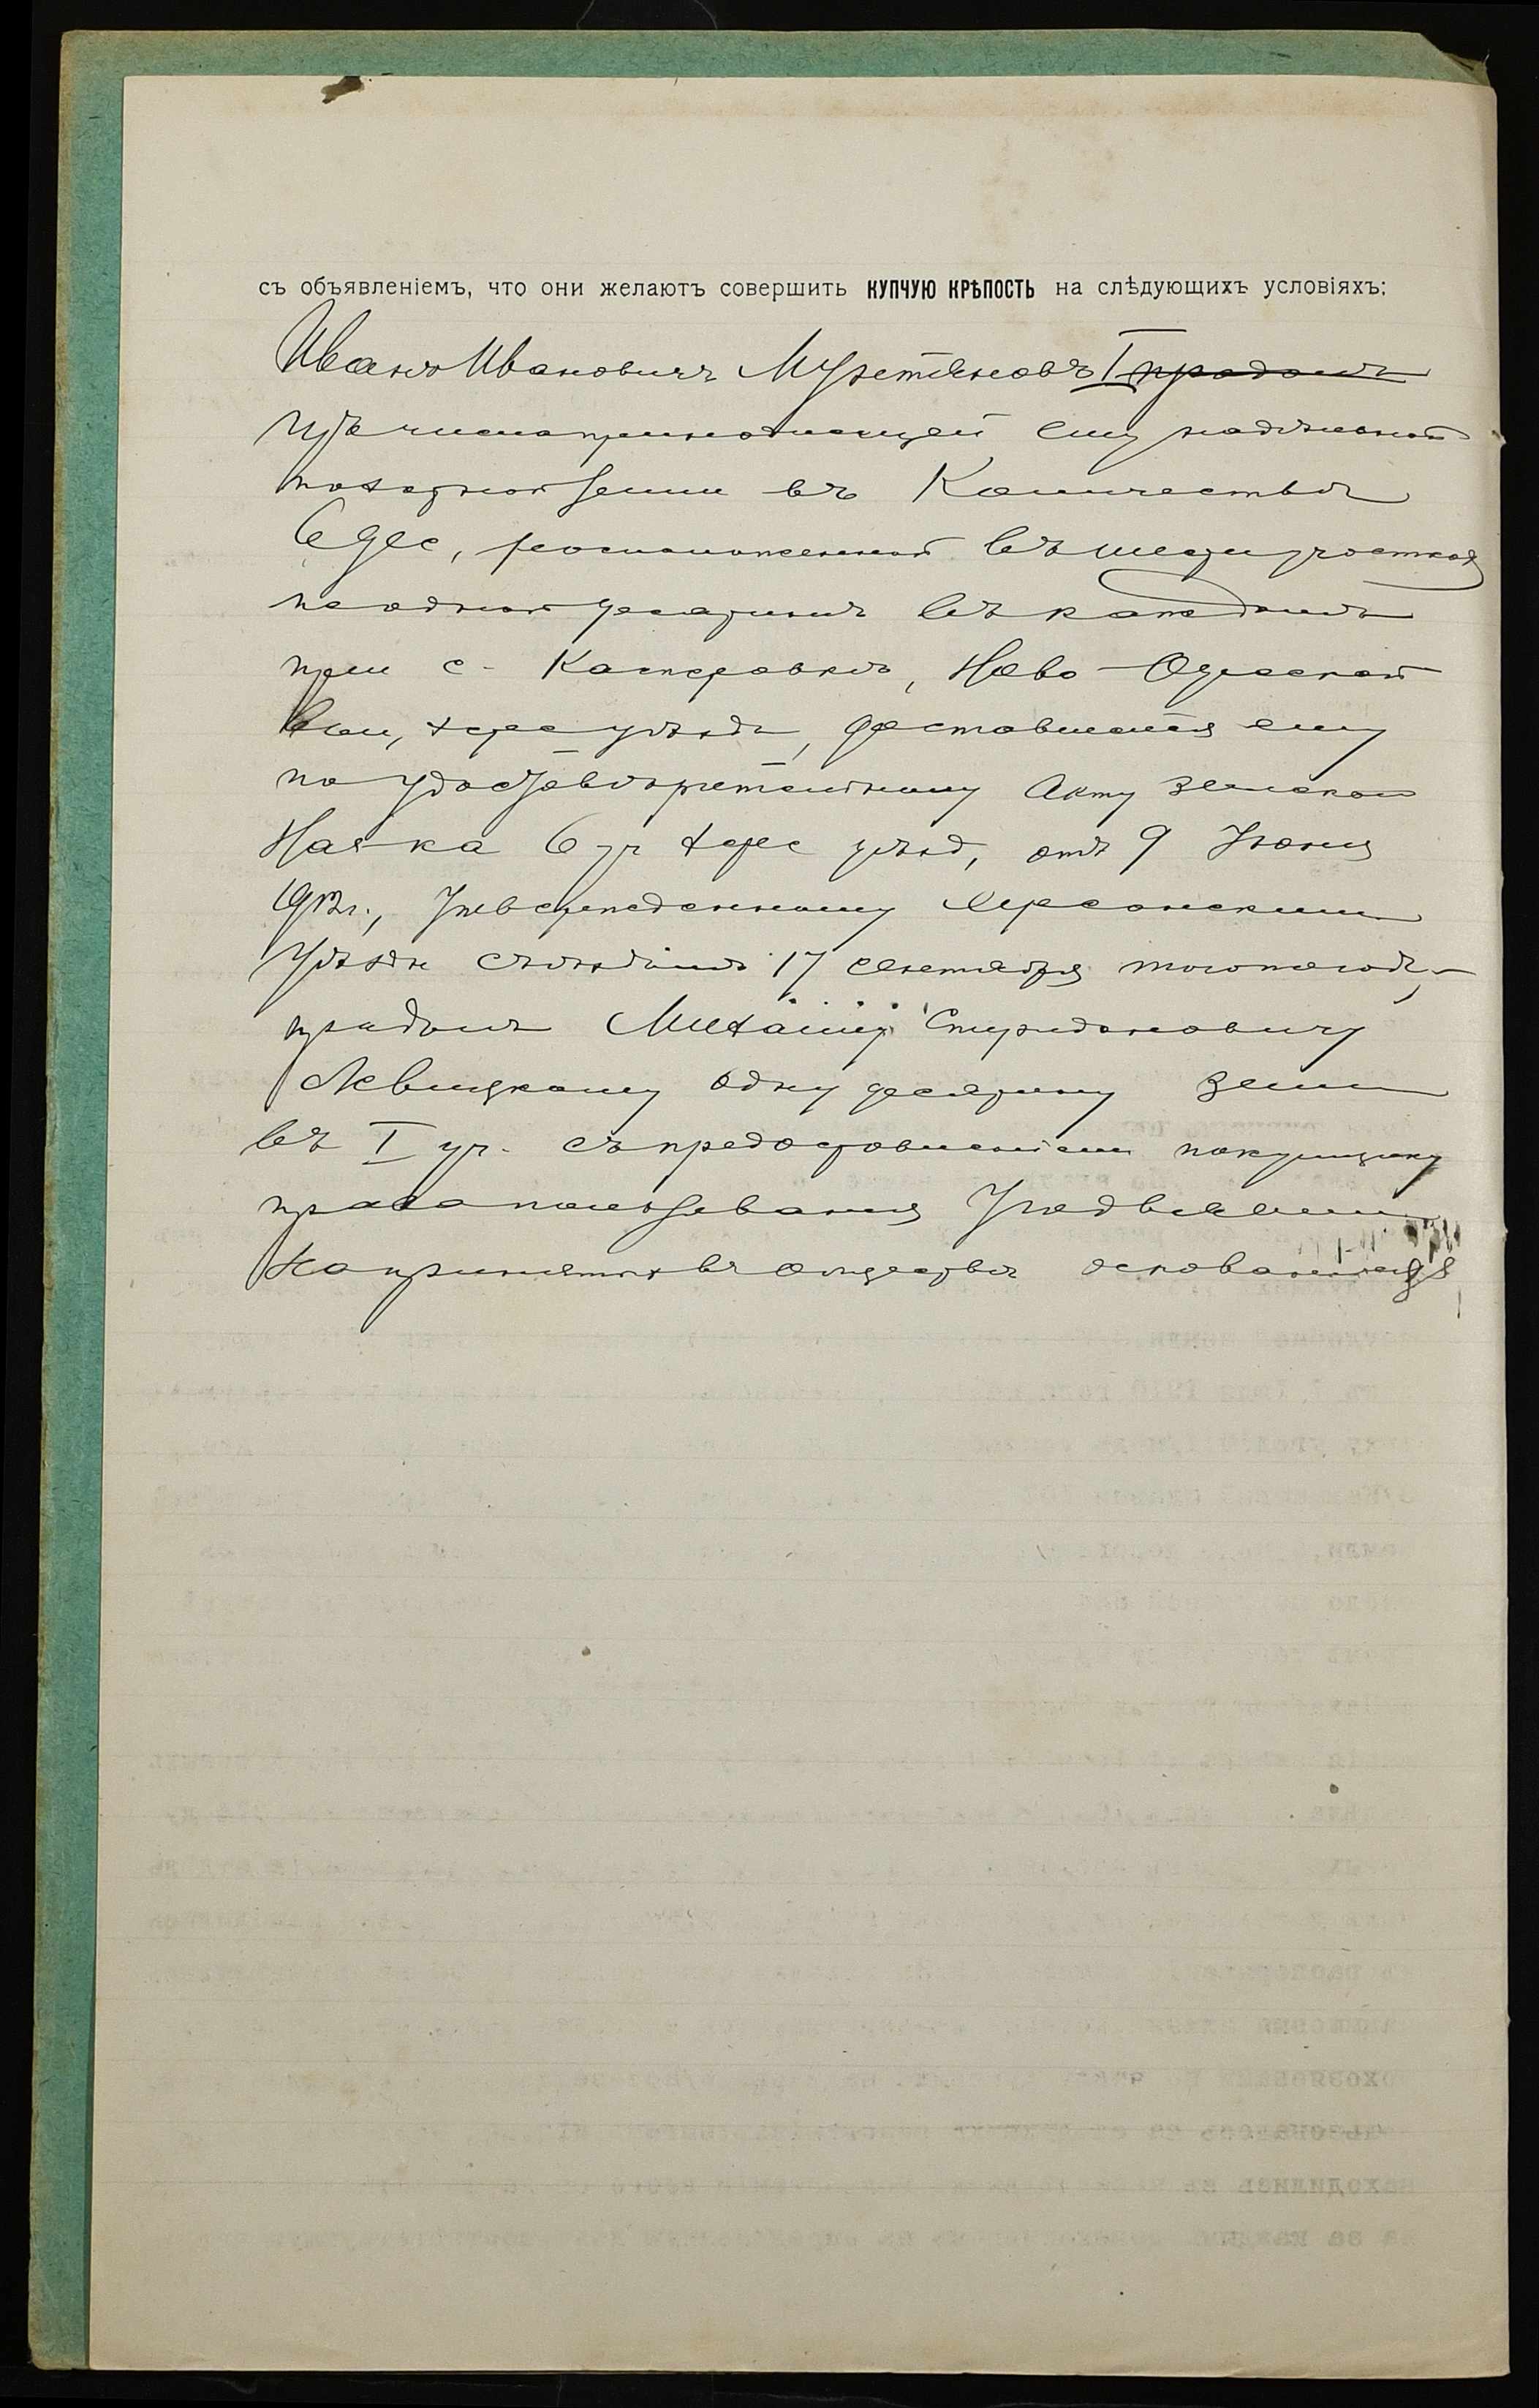 съ объявленіемъ, что они желаютъ совершить КУПЧУЮ КРѢПОСТЬ на слѣдующихъ условіяхъ:
Иванъ Ивановичъ I продалъ
изъ числа принадлежащей ему надѣльной
пахатной земли въ количествѣ
6 дес, расположенной въ шести участкахъ
по одной десятинѣ въ каждомъ
при с. Касперовкѣ, Ново-Одесской
вол, Херс уѣзда, доставшейся ему
по удостовѣрительному акту Земскаго
Нач-ка 6 уч Херс уѣзд, отъ 9 Іюня
1912 г., утвержденному Херсонскимъ
Уѣздн Съѣздомъ 17 сентября того же года,-
продалъ Михаилу Спиридоновичу
Левицкому одну десятину земли
въ I уч. съ предоставленіемъ покупщику
права пользованія
на принятыхъ въ обществѣ основаніяхъ